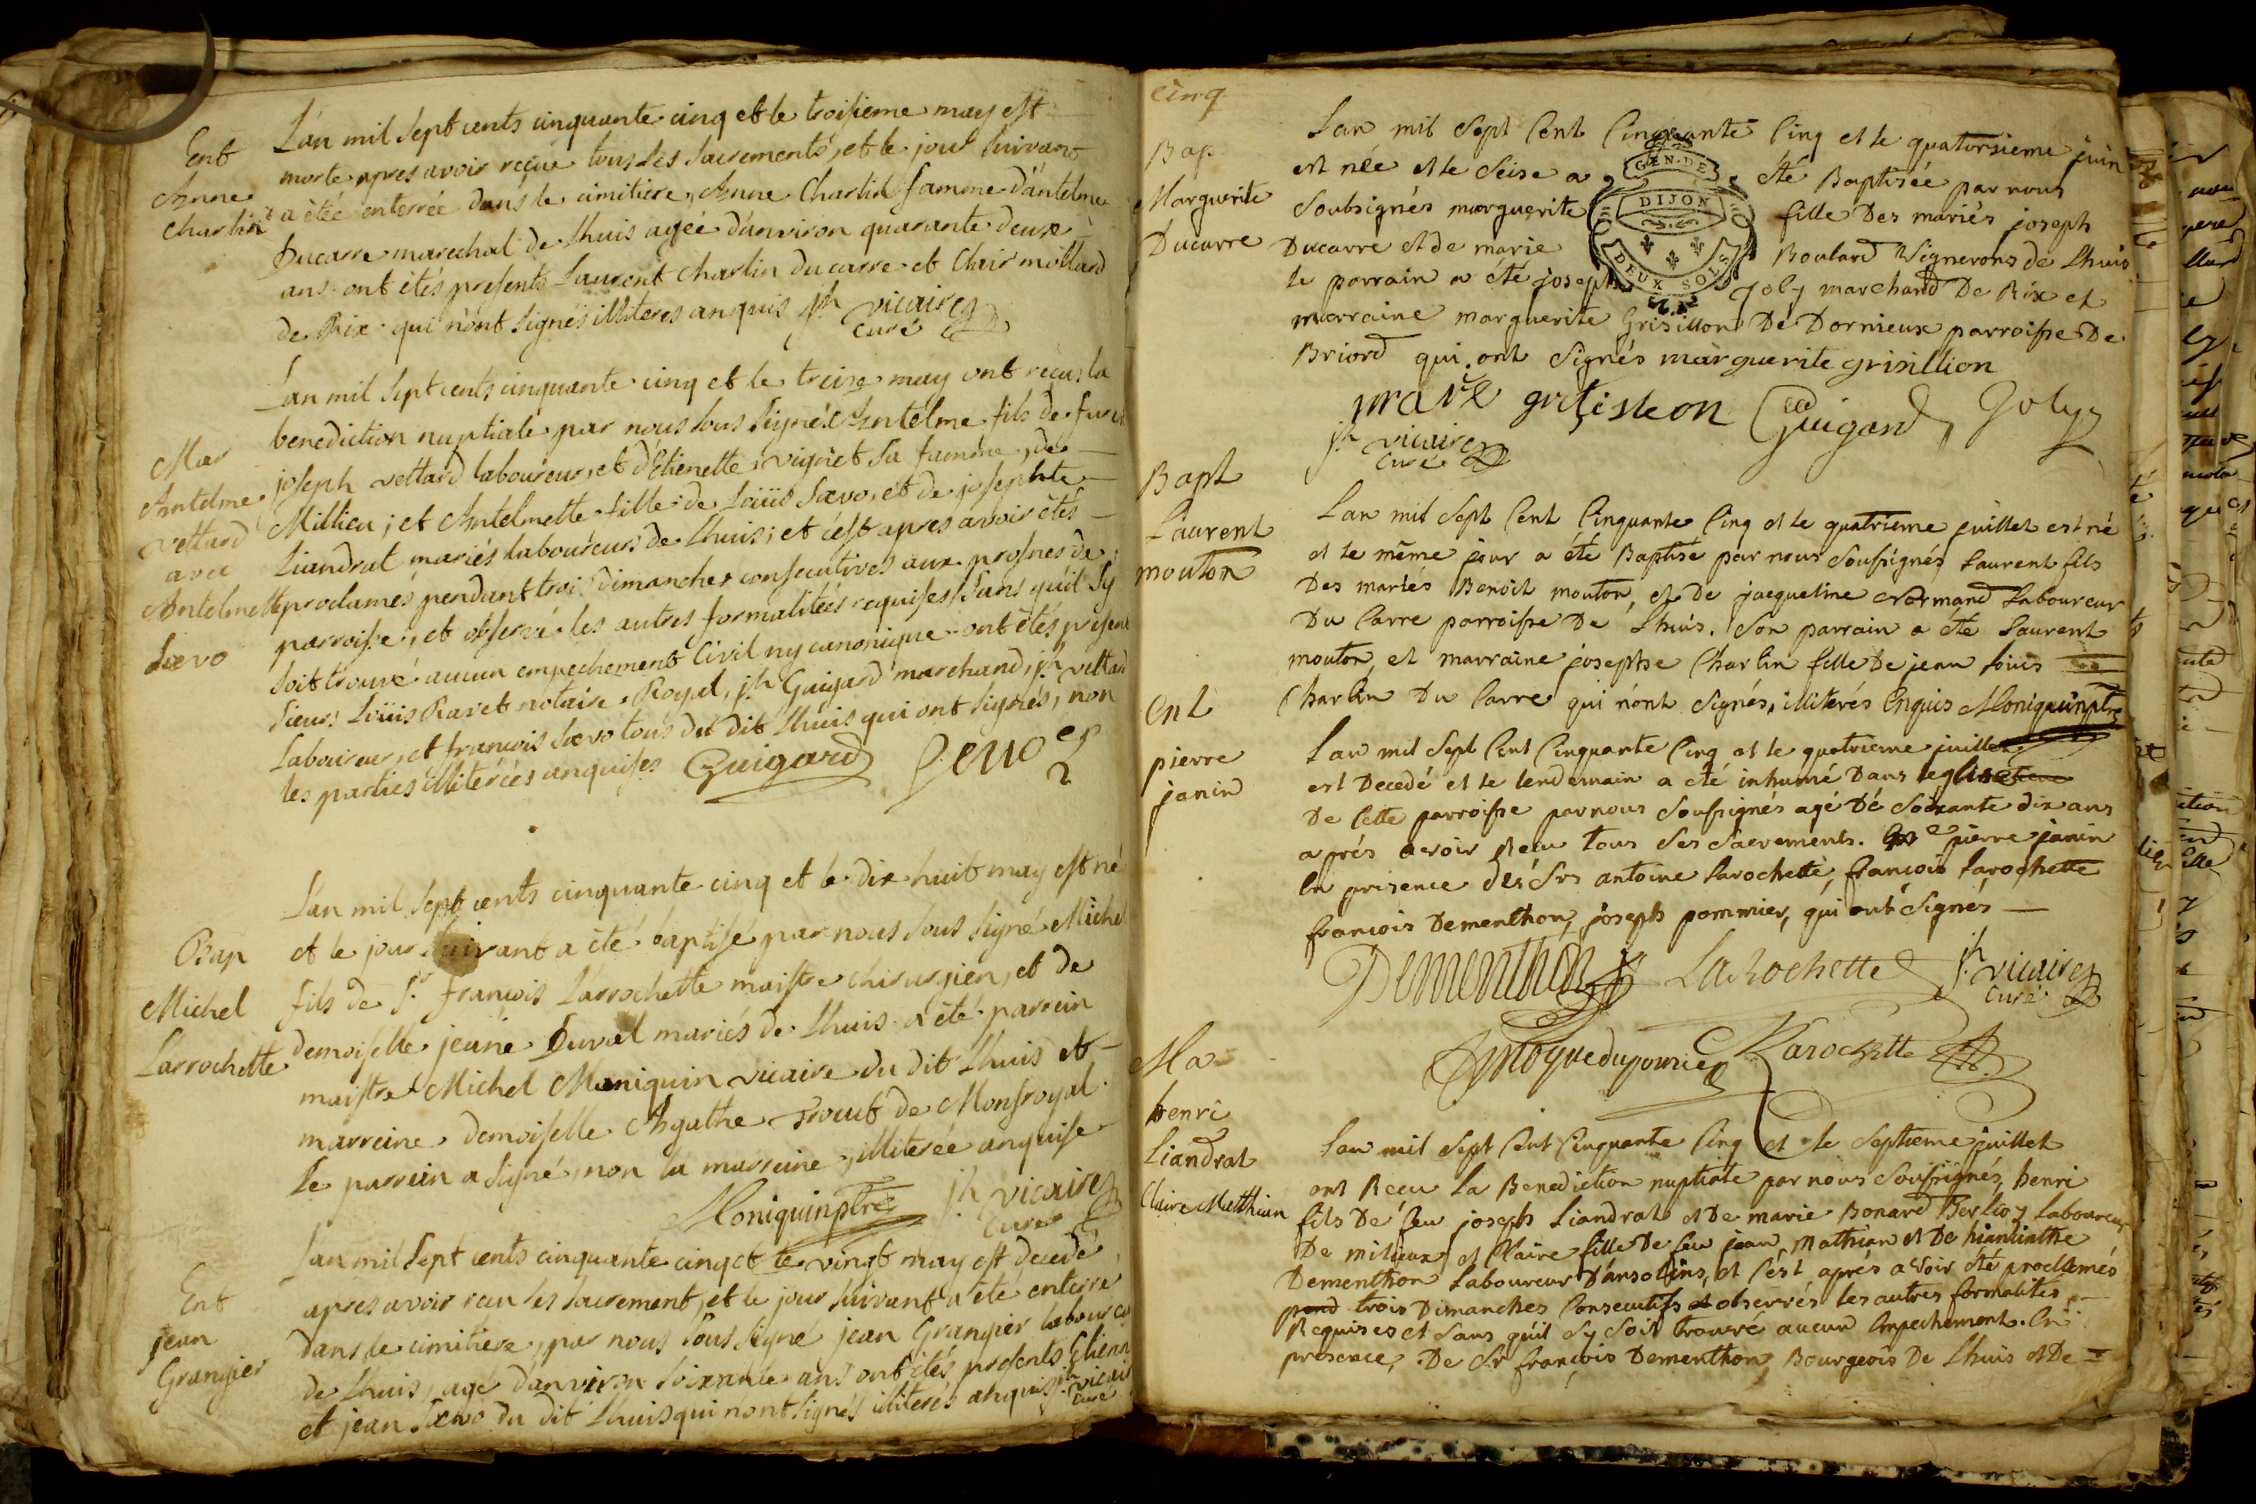 Ent
Anne
Charlin
L'an mil sept cents cinquante cinq et le troisieme may est
morte apres avoir reçue tous ses sacrements, et le jour suivant
a étée enterrée dans le cimitiere, Anne Charlin famme d'antelme
Ducarre marechal de Lhuis agée d'anviron quarante deux
ans ont étés presents Laurent charlin ducarre et Clair mollard
de Rix qui n'ont signés illiteres anquis jh vicaire
curé
Mar
Antelme
vettard
avec
Antelmette
Sævo
L'an mil sept cents cinquante cinq et le treize may ont reçus la
benediction nuptiale par nous sous signés Antelme fils de fur
joseph vettard laboureur, et d'Etienette vignet sa famme, de
Millieu; et Antelmette fille de Loüis Sævo, et de josephte
Liandrat mariés laboureurs de Lhuis; et c'est apres avoir étés
proclamés pendant trois dimanches consecutives aux prosnes de
parroisse, et observé les autres formalitées requises sans qu'il s'y
soit trouvé aucun empechement Civil ny canonique ont étés present
sieurs Loüis Ravet notaire Royal, jh Guigard marchand, jh vettard
Laboureur, et françois Sævo tous du dit Lhuis qui ont signés, non
les parties illiterées anquises Guigard Sevoz
Bap
Michel
Larrochette
L'an mil sept cents cinquante cinq et le dix huit may est né
et le jour suivant a été baptisé par nous sous signé Michel
fils de Sr françois Larrochette maistre chirurgien, et de
demoiselle jeane Duval mariés de Lhuis a été parrein
maistre Michel Moniquin vicaire du dit Lhuis et
marreine demoiselle Agathe Trocut de Monsroyal
Le parrein a signé, non la marreine, illiterée anquise
Moniquin ptre jh vicaire
curé
Ent
jean
Grangier
L'an mil sept cents cinquante cinq et le vingt may est decedé
apres avoir reçu les sacrement, et le jour suivant a été enterré
dans le cimitiere, par nous sous signé jean Grangier laboureur
de Lhuis, agé d'anviron soixante ans ont étés presents Etienne
et jean Sævo du dit Lhuis qui n'ont signés illiterés anquis jh vicaire
curé
cinq
Bap
Marguerite
Ducarre
L'an mil Sept Cent Cinquante Cinq et le quatorsieme juin
est née et le Seise a été Baptisée par nous
Soubsignés marguerite fille Des mariés joseph
Ducarre et de marie Boulard Vignerons de Lhuis
le parrain a été joseph Joly marchand De Rix et
marraine marguerite Grisillon De Dornieux parroisse De
Briord qui ont Signés marguerite grisillion
GEN. DE
DIJON
DEUX SOLS
Guigard Joly
jh vicaire
curé
Bapt
Laurent
mouton
L'an mil Sept Cent Cinquante Cinq et le quatrieme juillet est né
et le même jour a été Baptisé par nous Soussignés Laurent fils
Des mariés Benoit mouton, et De jacqueline Normand Laboureur
Du Carre parroisse De Lhuis. Son parrain a été Laurent
mouton, et marraine josephse Charlin fille De jean louis
Charlin Du Carre qui n'ont Signés, illiterés Enquis Moniquin ptre
Ent
pierre
janin
L'an mil Sept Cent Cinquante Cinq et le quatrieme juillet
est Decedé et le lendemain a été inhumé Dans l'eglise
De Cette parroisse par nous Soussignés agé Dé Soixante dix ans
aprés avoir Reçu tous Ses Sacrements. pierre janin
En presence des Srs antoine Larochette, françois Larochette
françois Dementhon, joseph pommier, qui ont Signés
Dementhon LaRochette jh vicaire
curé
Larochette
Ma
henri
Liandrat
Claire Matthian
L'an mil Sept Cent Cinquante Cinq et le Septieme juillet
ont Reçu La Benediction nuptiale par nous Soussignés, henri
fils De feu joseph Liandrat et De marie Bonard Berlioz Laboureur
De milieux, et Claire fille De feu jean Mathian et De hianlinthe
Dementhon Laboureur D'ansolins, et C'est aprés avoir été proclamés
pend trois Dimanches Consecutifs et observés les autres formalités
Requises et Sans qu'il S'y Soit trouvé aucun Empechement. En
presence, De Sr françois Dementhon, Bourgeois De Lhuis et De